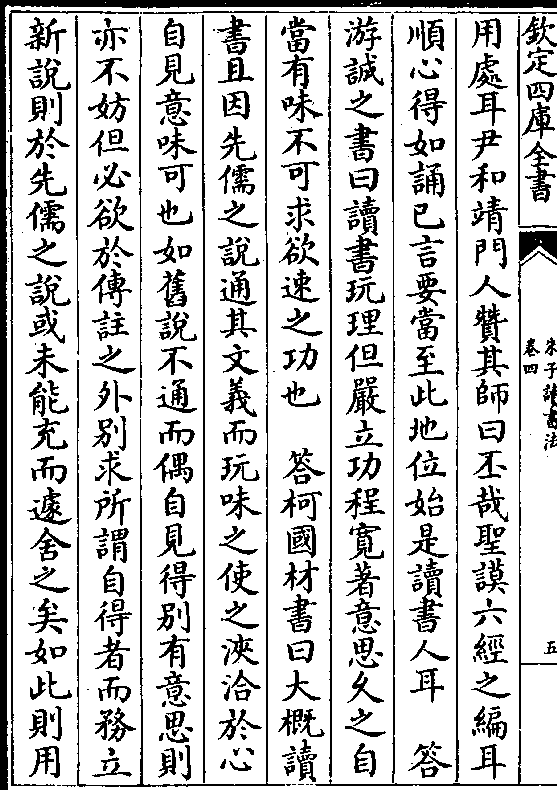 欽定四庫全書
朱子讀書法
卷四
五
用處耳尹和靖門人贊其師曰丕哉聖謨六經之編耳
順心得如誦已言要當至此地位始是讀書人耳　答
游誠之書曰讀書玩理但嚴立功程寛著意思久之自
當有味不可求欲速之功也　答柯國材書曰大概讀
書且因先儒之說通其文義而玩味之使之浹洽於心
自見意味可也如舊說不通而偶自見得別有意思則
亦不妨但必欲於傳註之外別求所謂自得者而務立
新說則於先儒之說或未能充而遽舍之矣如此則用